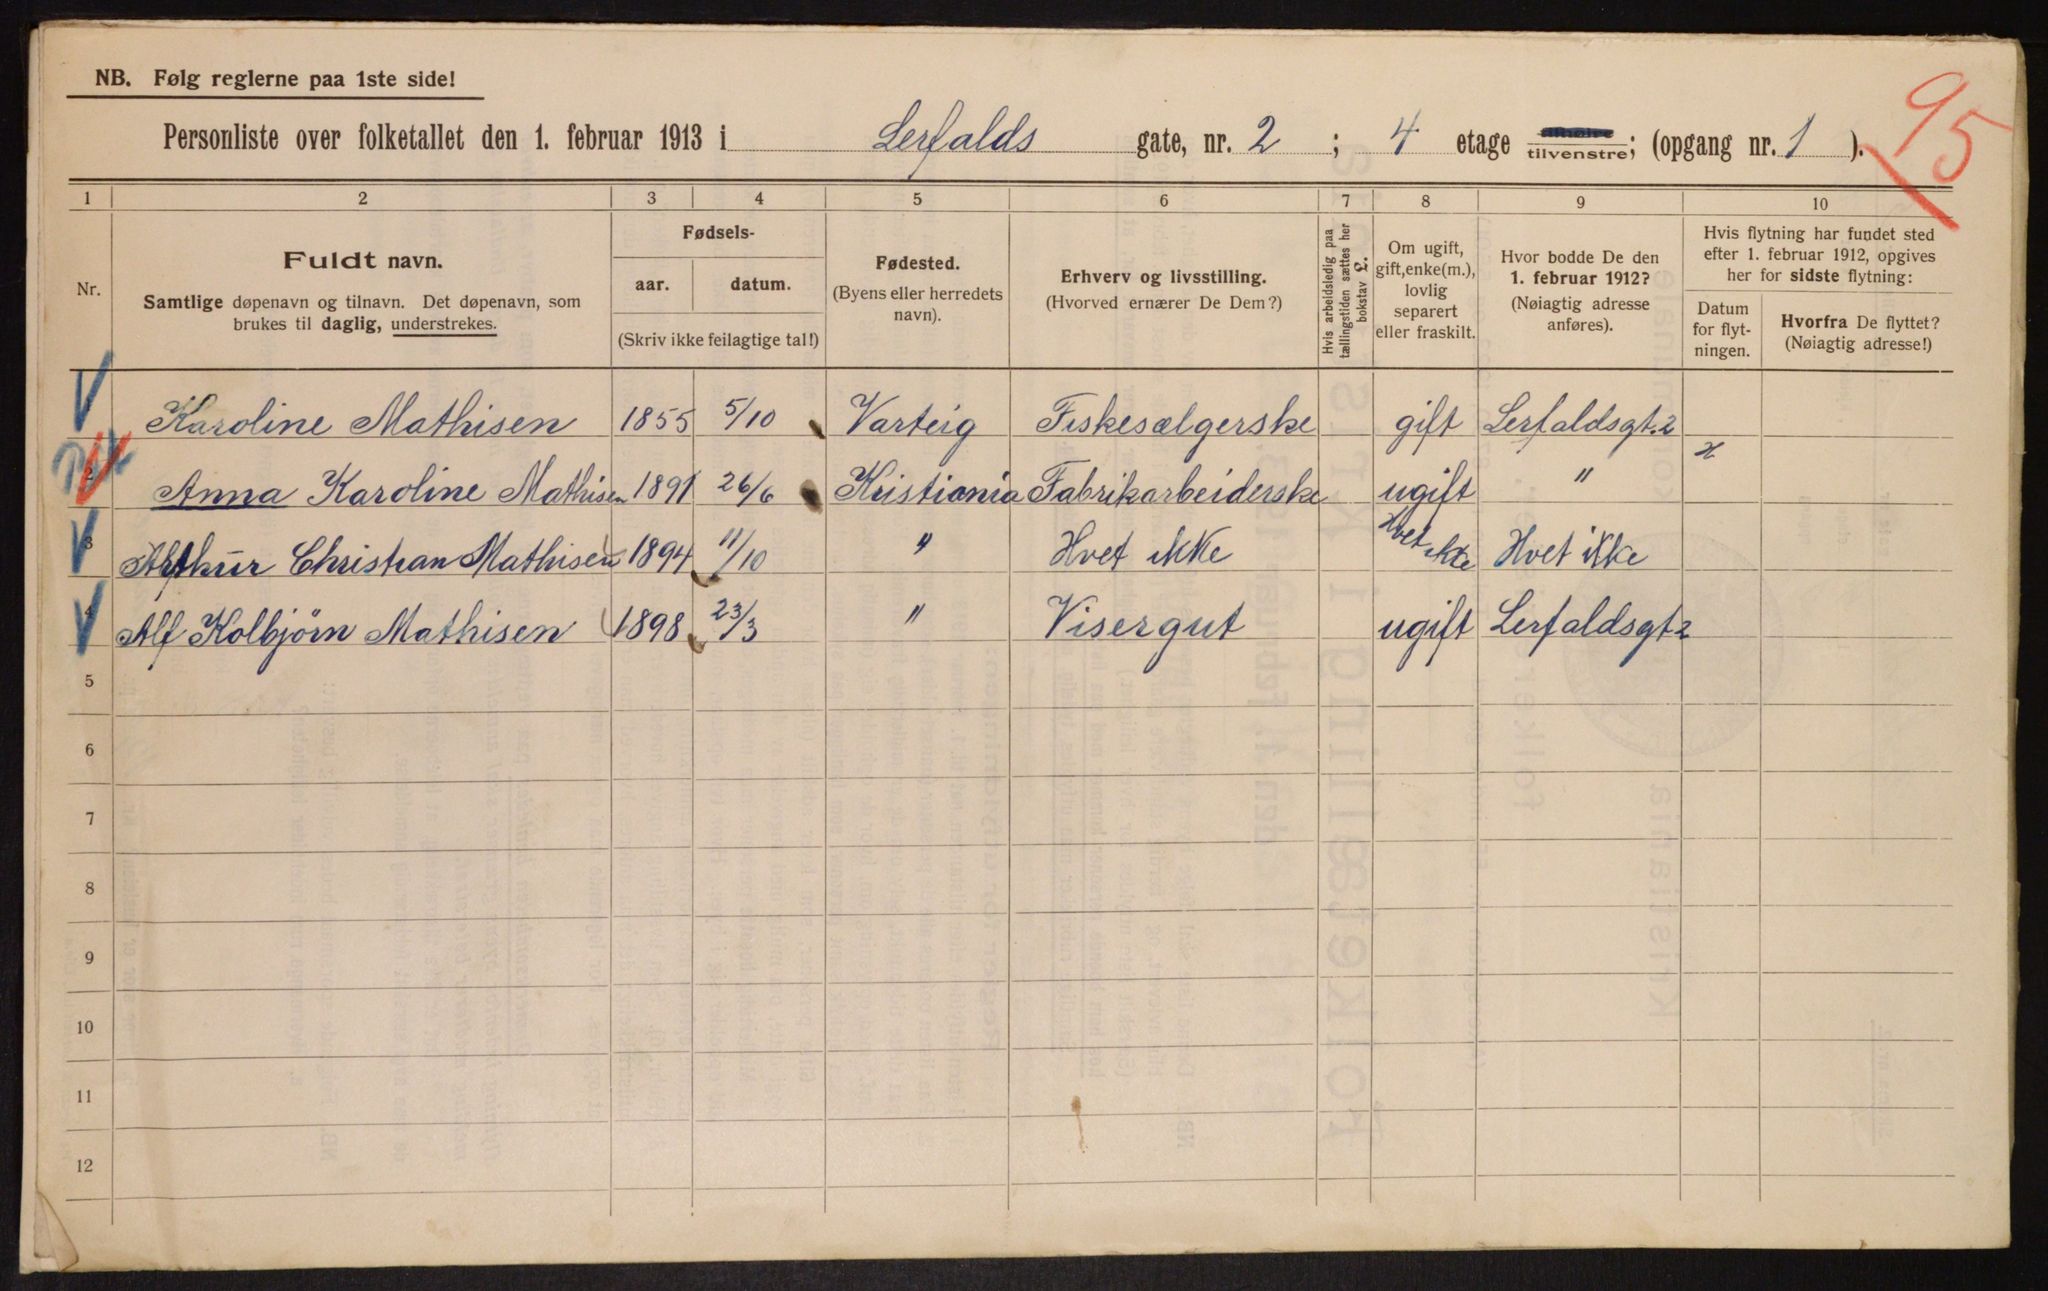 NB. Følg reglerne paa 1ste side!
95
Personliste over folketallet den 1. februar 1913 i Lerfalds gate, nr. 2 ; 4 etage tilhøire tilvenstre; (opgang nr. 1 ).
1 2 3 4 5 6 7 8 9 10
Nr.
Fuldt navn.
Samtlige døpenavn og tilnavn. Det døpenavn, som
brukes til daglig, understrekes.
Fødsels-
aar. datum.
(Skriv ikke feilagtige tal!)
Fødested.
(Byens eller herredets
navn).
Erhverv og livsstilling.
(Hvorved ernærer De Dem?)
Hvis arbeidsledig paa
tællingstiden sættes her
bokstav L.
Om ugift,
gift, enke(m.),
lovlig
separert
eller fraskilt.
Hvor bodde De den
1. februar 1912?
(Nøiagtig adresse
anføres).
Hvis flytning har fundet sted
efter 1. februar 1912, opgives
her for sidste flytning:
Datum
for flyt-
ningen.
Hvorfra De flyttet?
(Nøiagtig adresse!)
Karoline Mathisen 1855 5/10 Varteig Fiskesælgerske gift Lerfaldsgt. 2
2 Anna Karoline Mathisen 1891 26/6 Kristiania Fabrikarbeiderske ugift " x
3 Arthur Christian Mathisen 1894 11/10 " Hvet ikke Hvet ikke Hvet ikke
4 Alf Kolbjörn Mathisen 1898 23/3 " Visergut ugift Lerfaldsgt 2
5
6
7
8
9
10
11
12